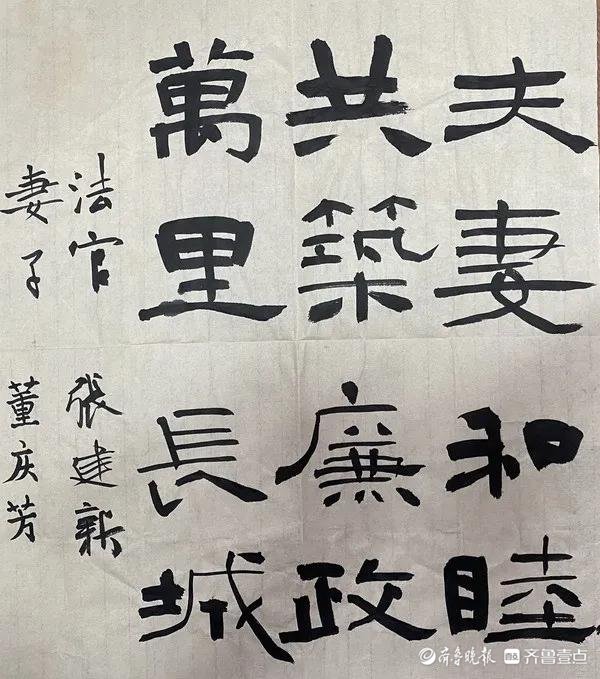 夫妻和睦
共築廉政
萬里長城
法官 張建新
妻子 董庆芳
齐鲁晚报 齐鲁壹点